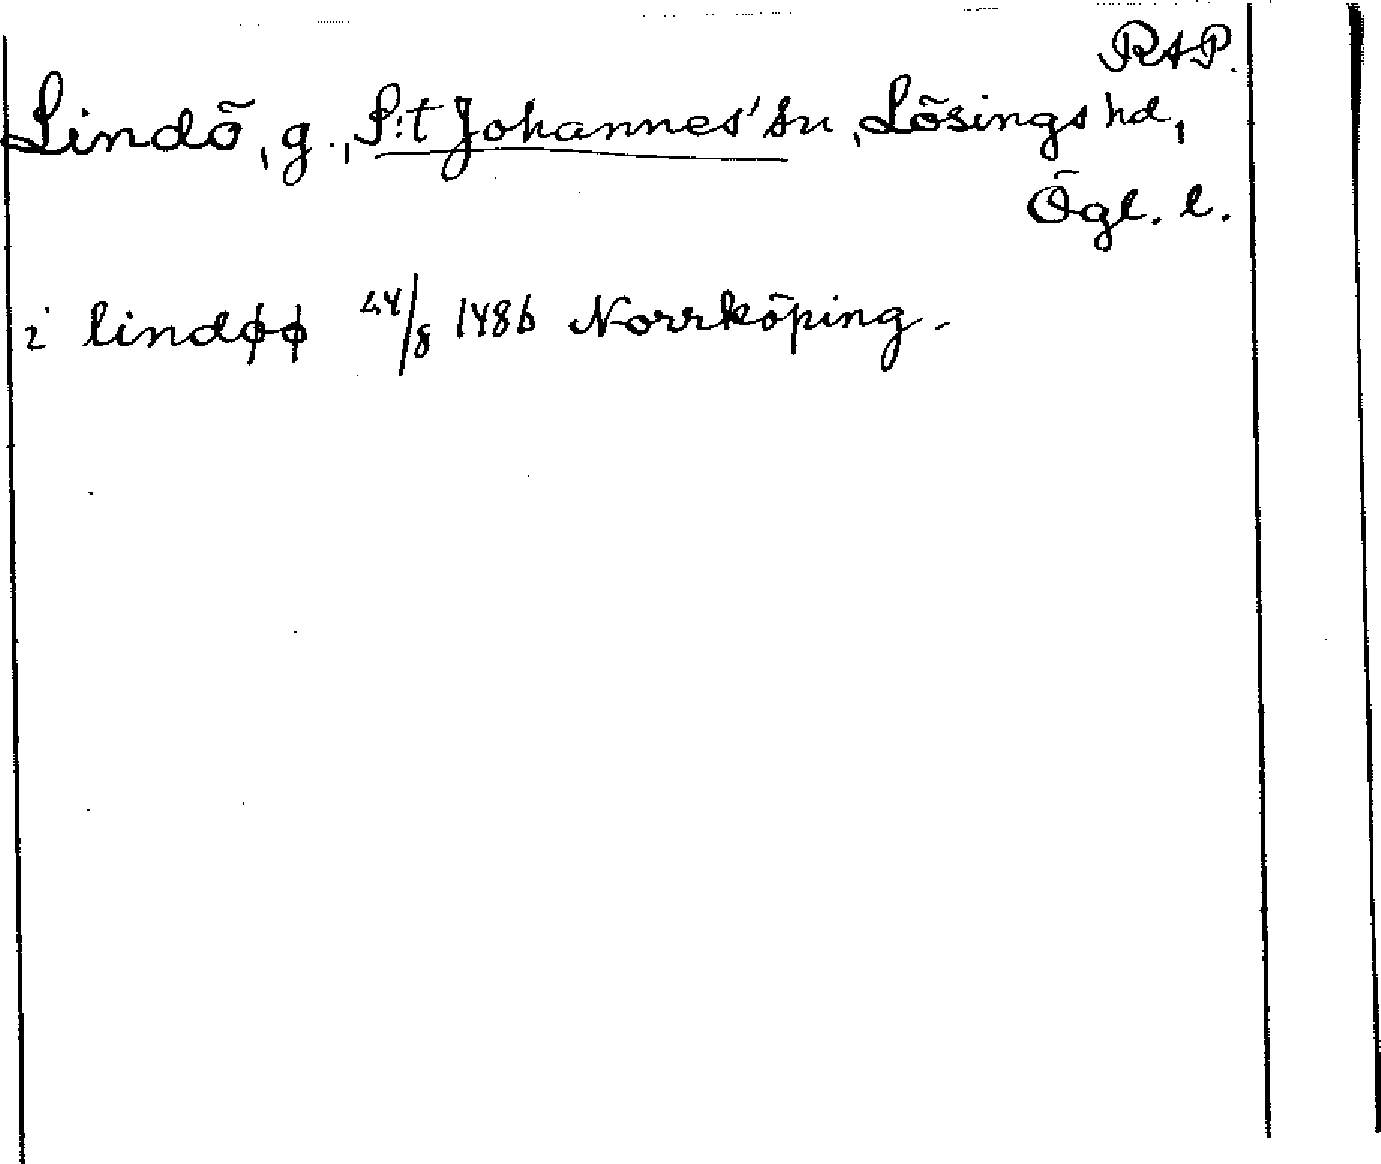 RAP.
Lindö, g., S:t Johannes' sn, Lösings hd,
Ögl. l.
i lindøø 24/8 1486 Norrköping.